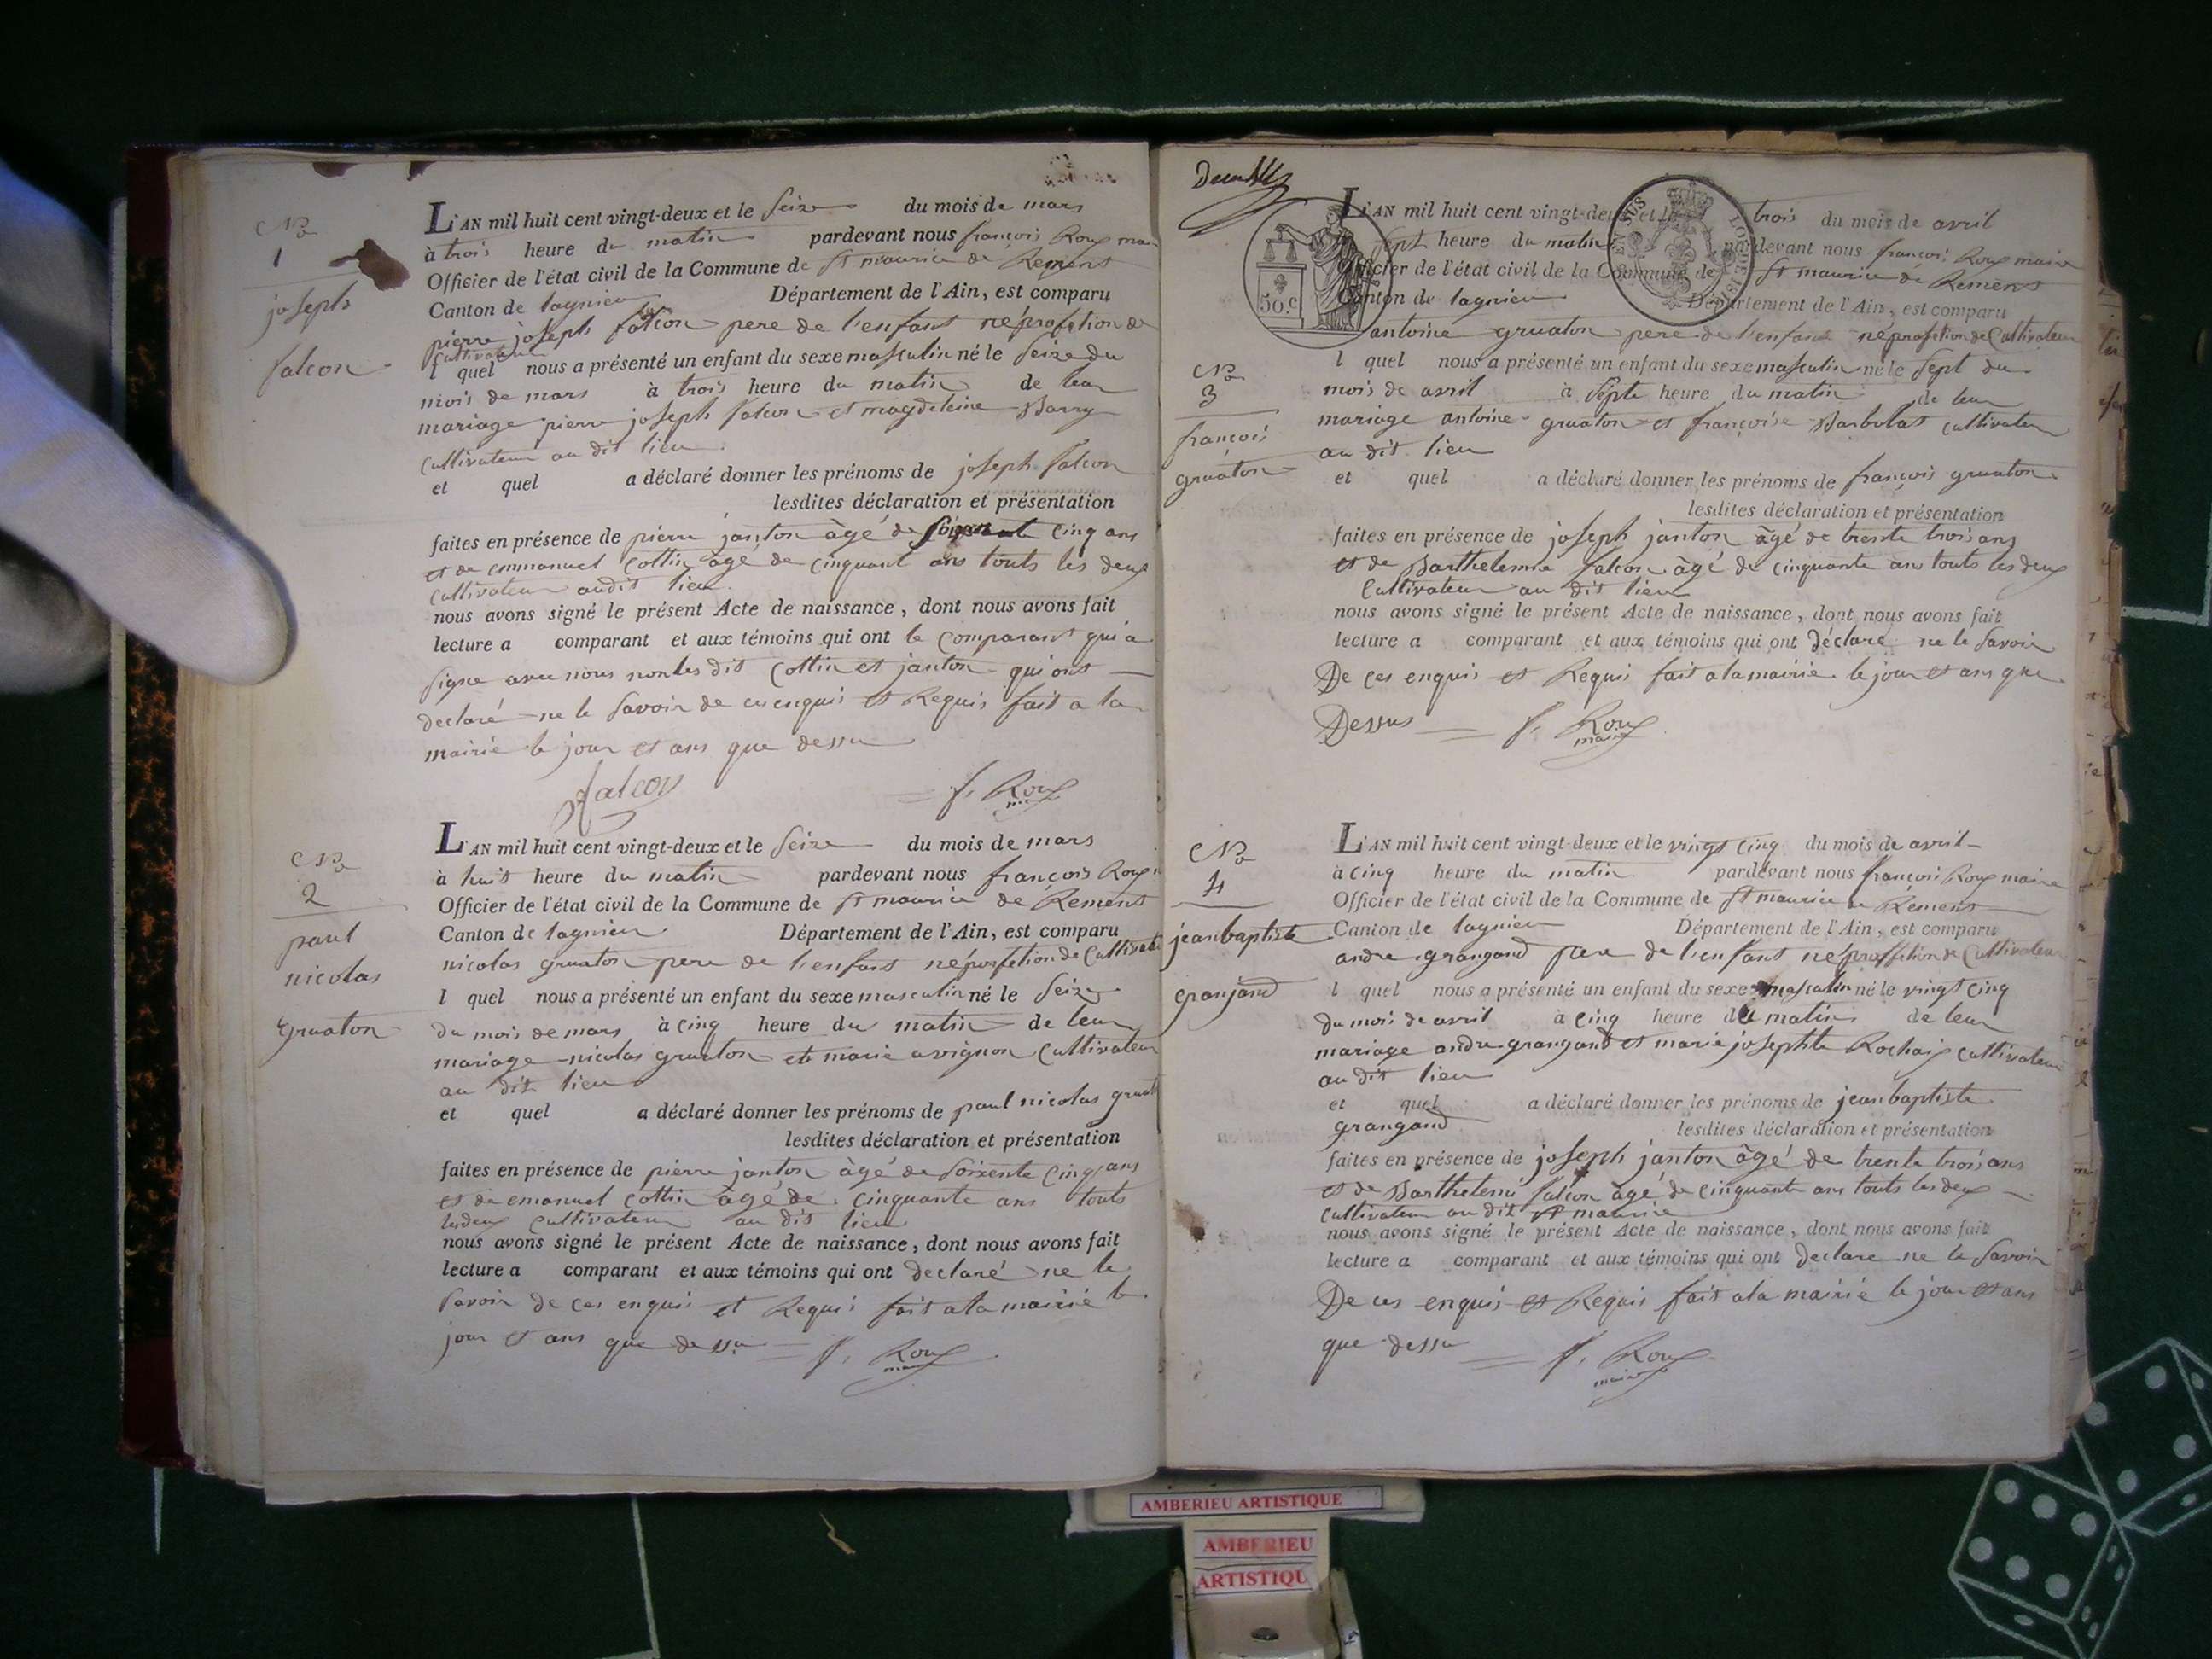 No
1
joseph
falcon
L'AN mil huit cent vingt-deux et le seize du mois de mars
à trois heure du matin pardevant nous françois Roux
Officier de l'état civil de la Commune de St maurice de Remens
Canton de lagnieu Département de l'Ain, est comparu
pierre joseph falcon pere de l'enfant né profetion de
cultivateur
l quel nous a présenté un enfant du sexe masculin né le seize du
mois de mars à trois heure du matin de leur
mariage pierre joseph falcon et magdeleine Barry
cultivateur au dit lieu
et quel a déclaré donner les prénoms de joseph falcon
lesdites déclaration et présentation
faites en présence de pierre janton âgé de soixante cinq ans
et de emmanuel Cottin âgé de cinquant ans touts les deux
cultivateur audit lieu
nous avons signé le présent Acte de naissance, dont nous avons fait
lecture a comparant et aux témoins qui ont le comparant qui a
signe avec nous non les dit Cottin et janton qui ont
declaré ne le savoir de ces enquis et Requis fait a la
mairie le jour et ans que dessu
falcon f. Roux
No
2
paul
nicolas
gruaton
L'AN mil huit cent vingt-deux et le seize du mois de mars
à huit heure du matin pardevant nous françois Roux
Officier de l'état civil de la Commune de St maurice de Remens
Canton de lagnieu Département de l'Ain, est comparu
nicolas gruaton pere de l'enfant né profetion de
l quel nous a présenté un enfant du sexe masculin né le seize
du mois de mars à cinq heure du matin de leur
mariage nicolas gruaton et marie avignon cultivateur
au dit lieu
et quel a déclaré donner les prénoms de paul nicolas
lesdites déclaration et présentation
faites en présence de pierre janton âgé de soixente cinq ans
et de emanuel Cottin âgé de cinquante ans touts
les deux cultivateur au dit lieu
nous avons signé le présent Acte de naissance, dont nous avons fait
lecture a comparant et aux témoins qui ont declaré ne le
savoir de ces enquis et Requis fait a la mairie le
jour et ans que dessu f. Roux
maire
50.c
EN SUS
L'AN mil huit cent vingt-deux et le trois du mois de avril
sept heure du matin pardevant nous françois Roux maire
Officier de l'état civil de la Commune de St maurice de Remens
Canton de lagnieu Département de l'Ain, est comparu
antoine gruaton pere de l'enfant né profetion de Cultivateur
No
3
françois
gruaton
l quel nous a présenté un enfant du sexe masculin né le sept du
mois de avril à septe heure du matin de leur
mariage antoine gruaton et françoise Barbolat cultivateur
au dit lieu
et quel a déclaré donner les prénoms de françois gruaton
lesdites déclaration et présentation
faites en présence de joseph janton âgé de trente trois ans
et de Barthelemie falcon âgé de cinquante ans touts les deux
Cultivateur au dit lieu
nous avons signé le présent Acte de naissance, dont nous avons fait
lecture a comparant et aux témoins qui ont déclaré ne le savoir
De ces enquis et Requis fait a la mairie le jour et ans que
Dessus f. Roux
maire
No
4
jean baptiste
granjand
L'AN mil huit cent vingt-deux et le vingt cinq du mois de avril
à cinq heure du matin pardevant nous françois Roux maire
Officier de l'état civil de la Commune de St maurice de Remens
Canton de lagnieu Département de l'Ain, est comparu
andre grangand pere de l'enfant né proffetion de Cultivateur
l quel nous a présenté un enfant du sexe masculin né le vingt cinq
du mois de avril à cinq heure du matin de leur
mariage andre grangand et marie josephte Rochaix cultivateur
au dit lieu
et quel a déclaré donner les prénoms de jean baptiste
grangand lesdites déclaration et présentation
faites en présence de joseph janton âgé de trente trois ans
et de Barthelemi falcon âgé de cinquante ans touts les deux
cultivateur au dit St maurice
nous avons signé le présent Acte de naissance, dont nous avons fait
lecture a comparant et aux témoins qui ont declare ne le savoir
De ces enquis et Requis fait a la mairie le jour et ans
que dessu f. Roux
maire
AMBERIEU ARTISTIQUE
AMBERIEU
ARTISTIQU